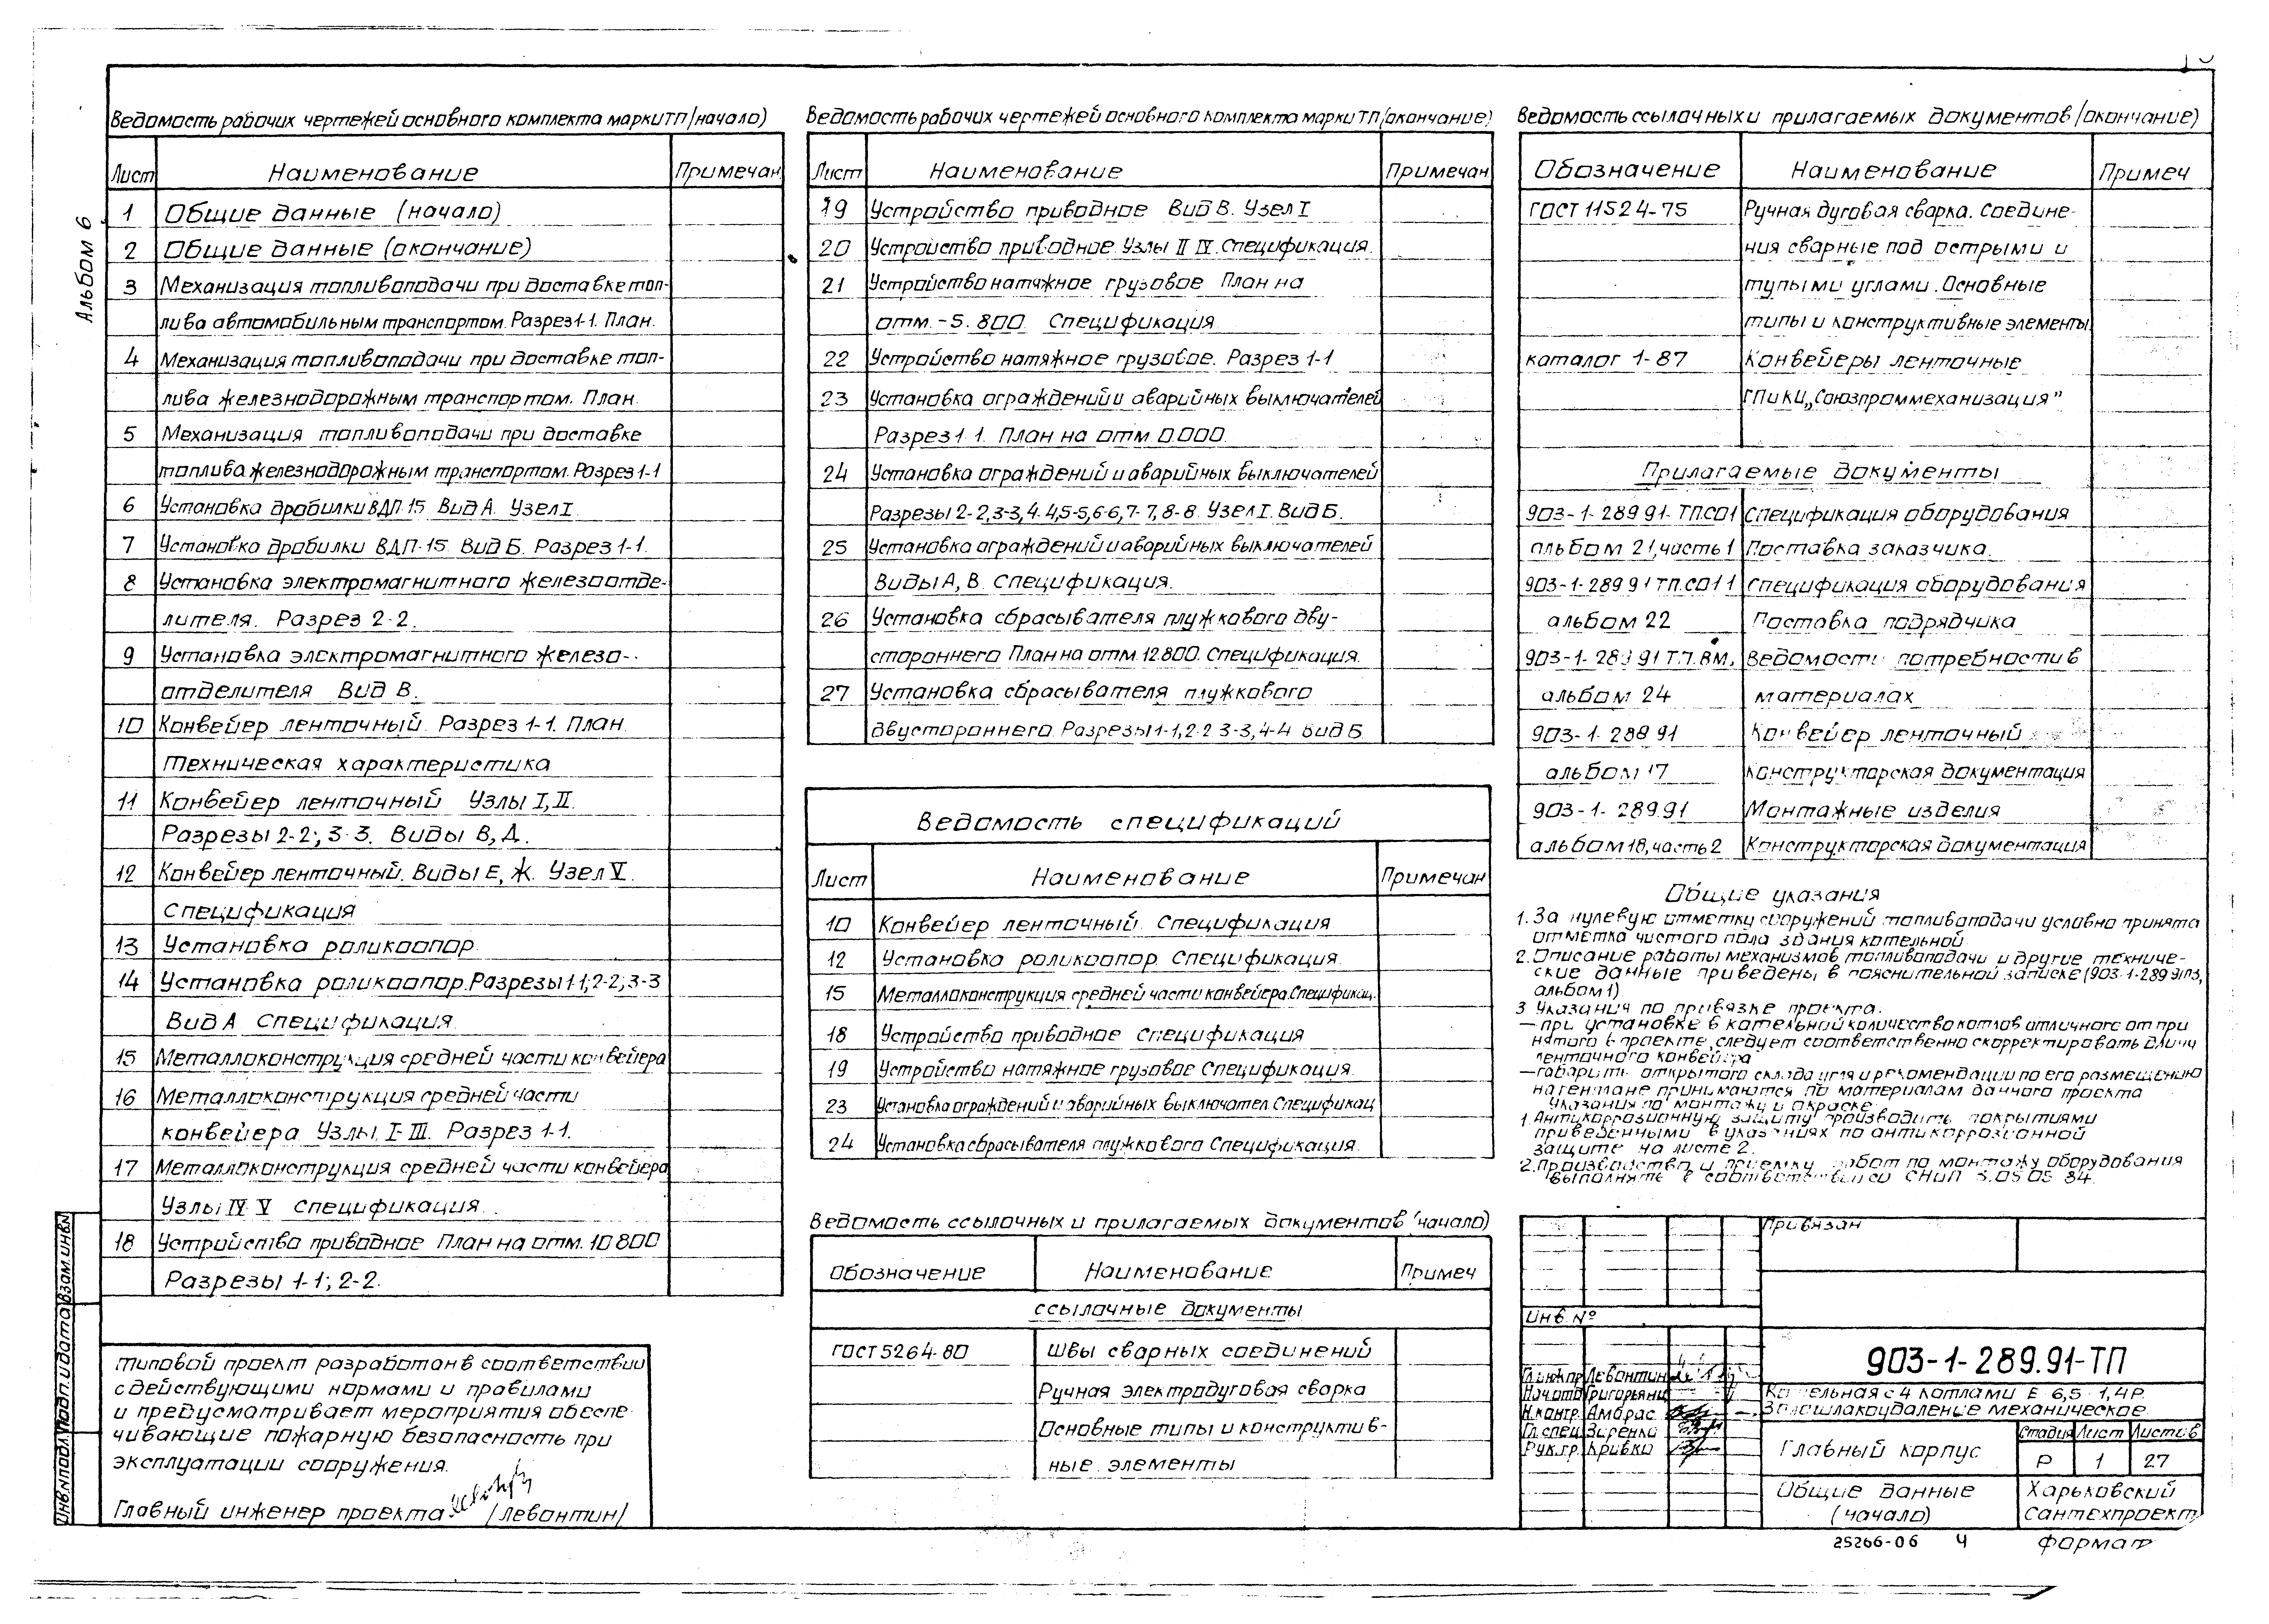 Альбом 6
Ведомость рабочих чертежей основного комплекта марки ТП (начало)
Лист Наименование Примечан
1 Общие данные (начало)
2 Общие данные (окончание)
3 Механизация топливоподачи при доставке топ-
лива автомобильным транспортом. Разрез 1-1. План.
4 Механизация топливоподачи при доставке топ-
лива железнодорожным транспортом. План.
5 Механизация топливоподачи при доставке
топлива железнодорожным транспортом. Разрез 1-1
6 Установка дробилки ВДП-15 Вид А. Узел I.
7 Установка дробилки ВДП-15. Вид Б. Разрез 1-1.
8 Установка электромагнитного железоотде-
лителя. Разрез 2-2.
9 Установка электромагнитного железо-
отделителя Вид В.
10 Конвейер ленточный. Разрез 1-1. План.
Техническая характеристика
11 Конвейер ленточный Узлы I, II.
Разрезы 2-2; 3-3. Виды В, Д.
12 Конвейер ленточный. Виды Е, Ж. Узел V.
Спецификация
13 Установка роликоопор.
14 Установка роликоопор. Разрезы 1-1; 2-2; 3-3
Вид А Спецификация
15 Металлоконструкция средней части конвейера
16 Металлоконструкция средней части
конвейера Узлы I-III. Разрез 1-1.
17 Металлоконструкция средней части конвейера
Узлы IV V Спецификация.
18 Устройство приводное План на отм. 10 800
Разрезы 1-1; 2-2.
Типовой проект разработан в соответствии
с действующими нормами и правилами
и предусматривает мероприятия обеспе-
чивающие пожарную безопасность при
эксплуатации сооружения.
Главный инженер проекта /Левонтин/
Инв.№подл. Подп. и дата Взам.инв№
Ведомость рабочих чертежей основного комплекта марки ТП (окончание)
Лист Наименование Примечан
19 Устройство приводное Вид В. Узел I
20 Устройство приводное. Узлы II IV. Спецификация.
21 Устройство натяжное грузовое План на
отм. -5. 800 Спецификация
22 Устройство натяжное грузовое. Разрез 1-1
23 Установка ограждений и аварийных выключателей
Разрез 1-1. План на отм. 0.000.
24 Установка ограждений и аварийных выключателей
Разрезы 2-2, 3-3, 4-4, 5-5, 6-6, 7-7, 8-8. Узел I. Вид Б.
25 Установка ограждений и аварийных выключателей
Виды А, В. Спецификация.
26 Установка сбрасывателя плужкового дву-
стороннего План на отм. 12.800. Спецификация.
27 Установка сбрасывателя плужкового
двустороннего. Разрезы 1-1, 2-2 3-3, 4-4 Вид Б
Ведомость спецификаций
Лист Наименование Примечан
10 Конвейер ленточный. Спецификация
12 Установка роликоопор. Спецификация.
15 Металлоконструкция средней части конвейера. Спецификац.
18 Устройство приводное Спецификация
19 Устройство натяжное грузовое Спецификация.
23 Установка ограждений и аварийных выключател. Спецификац
24 Установка сбрасывателя плужкового Спецификация.
Ведомость ссылочных и прилагаемых документов (начало)
Обозначение Наименование Примеч
Ссылочные документы
ГОСТ 5264-80 Швы сварных соединений
Ручная электродуговая сварка
Основные типы и конструктив-
ные элементы
Ведомость ссылочных и прилагаемых документов (окончание)
Обозначение Наименование Примеч
ГОСТ 11524-75 Ручная дуговая сварка. Соедине-
ния сварные под острыми и
тупыми углами. Основные
типы и конструктивные элементы
каталог 1-87 Конвейеры ленточные
ГПиКИ „Союзпроммеханизация"
Прилагаемые документы
903-1-289 91-ТП.СО1 Спецификация оборудования
альбом 21, часть 1 Поставка заказчика.
903-1-289 91 ТП.СО1 1 Спецификация оборудования
альбом 22 Поставка подрядчика
903-1-289 91 Т.П. ВМ. Ведомость потребности в
альбом 24 материалах
903-1-289 91 Конвейер ленточный
альбом 17 Конструкторская документация
903-1-289.91 Монтажные изделия
альбом 18, часть 2 Конструкторская документация
Общие указания
1. За нулевую отметку сооружений топливоподачи условно принята
отметка чистого пола здания котельной
2. Описание работы механизмов топливоподачи и другие техниче-
ские данные приведены в пояснительной записке (903-1-289 91ПЗ,
альбом 1)
3 Указания по привязке проекта.
— при установке в котельной количество котлов отличного от при
нятого в проекте, следует соответственно скорректировать длину
ленточного конвейера
— габариты открытого склада угля и рекомендации по его размещению
на генплане принимаются по материалам данного проекта
Указания по монтажу и окраске
1. Антикоррозионную защиту производить покрытиями
приведенными в указаниях по антикоррозионной
защите на листе 2.
2. Производство и приемку работ по монтажу оборудования
выполнять в соответствии со СНиП 3.05 05 84.
Привязан
Инв. №
903-1-289.91-ТП
Котельная с 4 котлами Е 6,5-1,4Р.
Золошлакоудаление механическое.
Гл.инж.пр Левонтин
Нач.отд Григорьянц
Н.контр. Амбрас
Гл.спец Зиренко
Рук.гр. Кривко
Главный корпус
Стадия Лист Листов
Р 1 27
Общие данные
(начало)
Харьковский
Сантехпроект
25266-06 4 формат